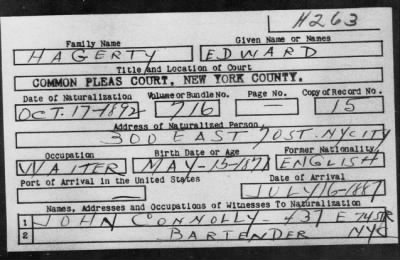 H263
Family Name Given Name or Names
HAGERTY EDWARD
Title and Location of Court
COMMON PLEAS COURT, NEW YORK COUNTY.
Date of Naturalization Volume or Bundle No. Page No. Copy of Record No.
OCT. 17-1892 716 — 15
Address of Naturalized Person
300 EAST 70ST. NYCITY
Occupation Birth Date or Age Former Nationality
WAITER MAY-15-1871 ENGLISH
Port of Arrival in the United States Date of Arrival
— JULY 16-1887
Names, Addresses and Occupations of Witnesses To Naturalization
1 JOHN CONNOLLY- 437 E 74 STR
2 BARTENDER NYC